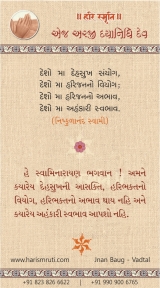 ॥ હરિ સ્મૃતિ ॥
એજ અરજી દયાનિધિ દેવ
દેશો મા દેહસુખ સંયોગ,
દેશો મા હરિજનનો વિયોગ;
દેશો મા હરિજનનો અભાવ,
દેશો મા અહંકારી સ્વભાવ.
(નિષ્કુળાનંદ સ્વામી)
હે સ્વામિનારાયણ ભગવાન ! અમને
ક્યારેય દેહસુખની આસક્તિ, હરિભક્તનો
વિયોગ, હરિભક્તનો અભાવ થાય નહિ અને
ક્યારેય અહંકારી સ્વભાવ આપશો નહિ.
www.harismruti.com
Jnan Baug - Vadtal
+91 823 826 6622 | +91 990 900 6765